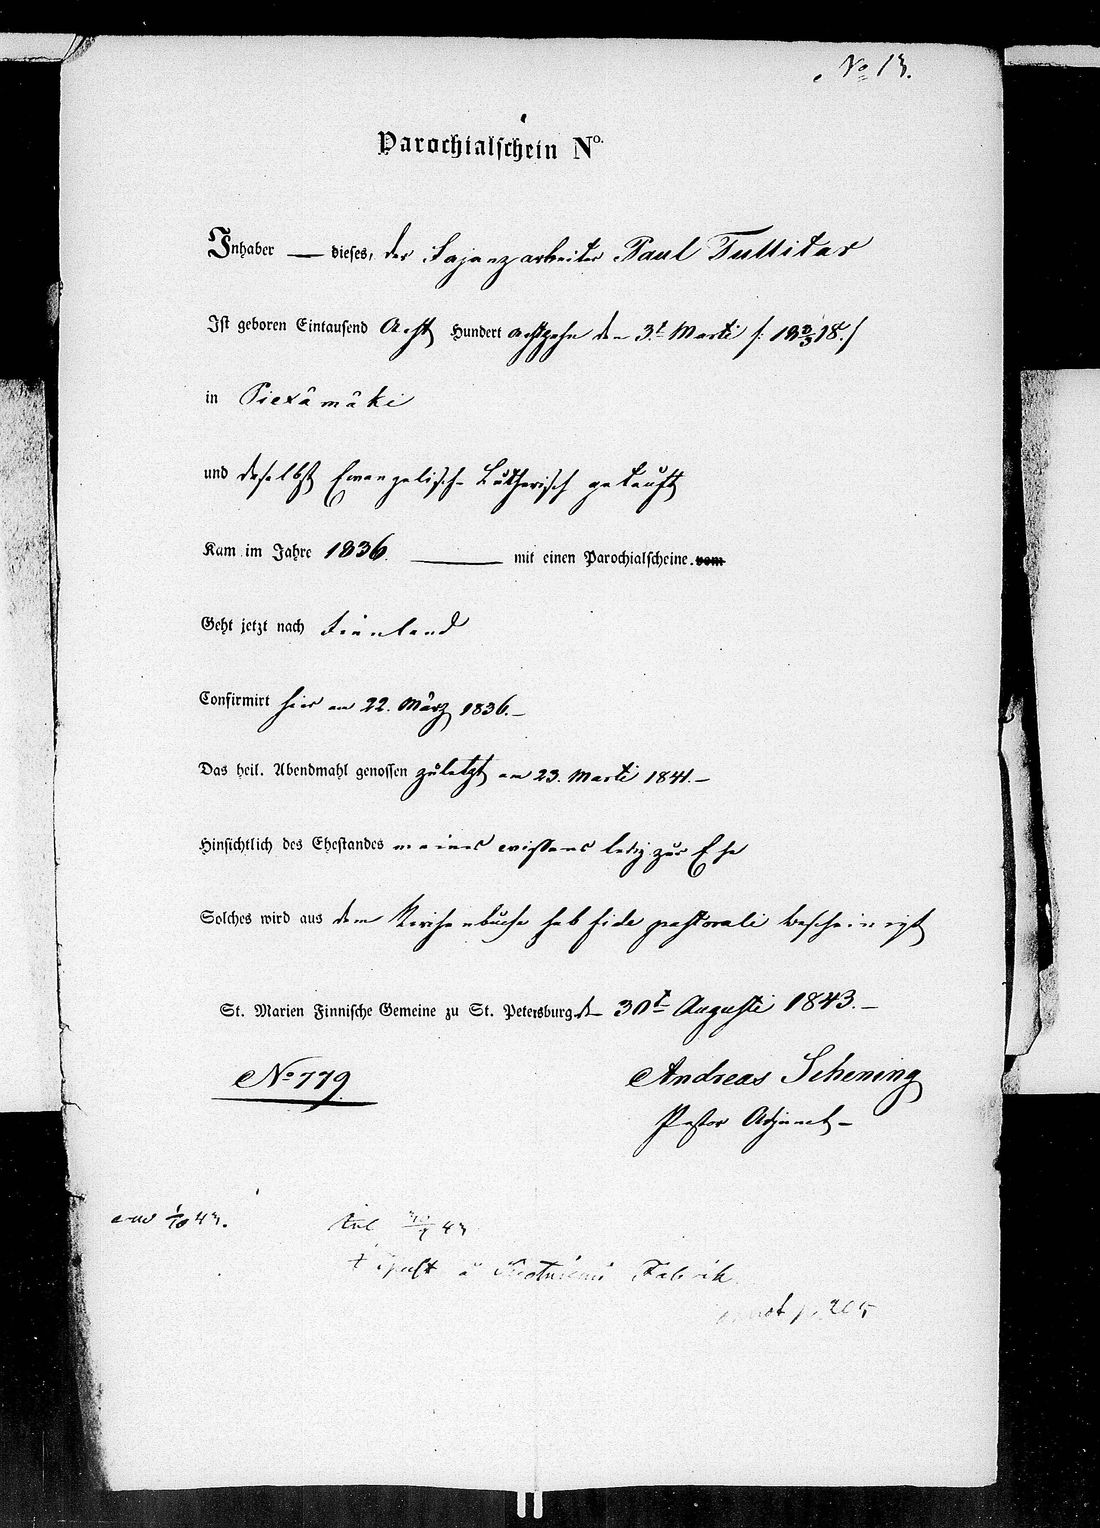 No 13.
Parochialschein No.
Inhaber — dieses, der Fajanzarbeiter Paul Tullitar
Ist geboren Eintausend Acht Hundert achtzehn den 3t Martii /: 18 3/3 18 :/
in Piexämäki
und daselbst Evangelisch-Lutherisch getauft
Kam im Jahre 1836 — mit einen Parochialscheine. vom
Geht jetzt nach Finnland
Confirmirt hier am 22. März 1836.–
Das heil. Abendmahl genossen zuletzt am 23. Martii 1841.–
Hinsichtlich des Ehestandes meines wissens ledig zur Ehe
Solches wird aus dem Kirchenbuche sub fide pastorali bescheinigt
St. Marien Finnische Gemeine zu St. Petersburg d– 30t Augusti 1843.–
No 779
Andreas Schening
Pastor Adjunct–
1/10 43.
43
å Fabrik
p. 205